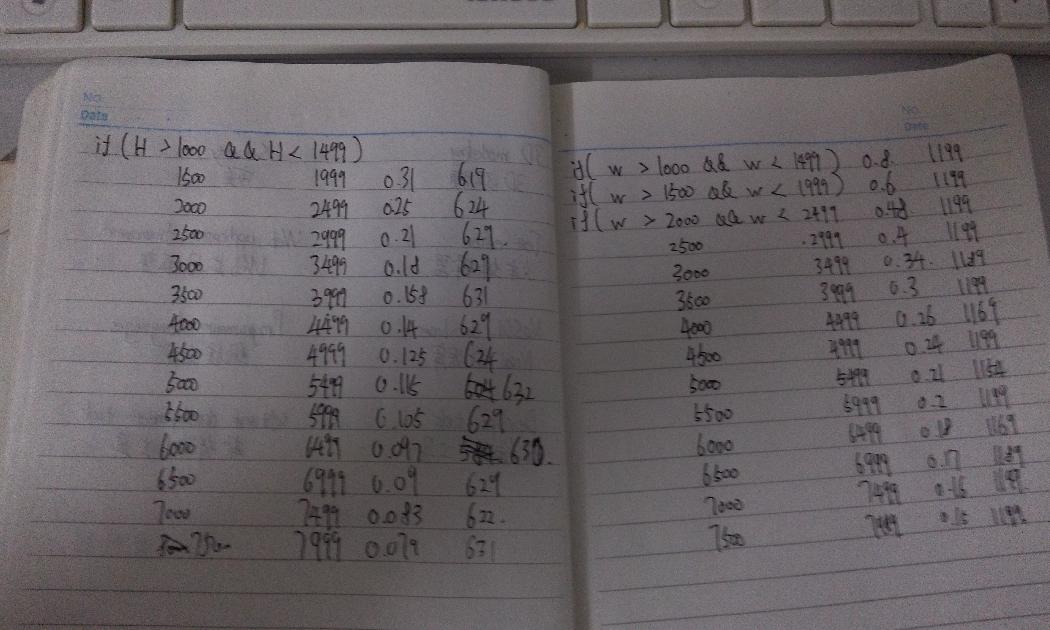 No.
Date
if (H > 1000 && H < 1499)
1500 1999 0.31 619
2000 2499 0.25 624
2500 2999 0.21 629.
3000 3499 0.18 629
3500 3999 0.158 631
4000 4499 0.14 629
4500 4999 0.125 624
5000 5499 0.115 632
5500 5999 0.105 629
6000 6499 0.097 630.
6500 6999 0.09 629
7000 7499 0.083 622.
7500 7999 0.079 631
No.
Date
if( w > 1000 && w < 1499) 0.8. 1199
if( w > 1500 && w < 1999) 0.6 1199
if( w > 2000 && w < 2499 0.48 1199
2500 .2999 0.4 1199
3000 3499 0.34. 1189
3500 3999 0.3 1199
4000 4499 0.26 1169
4500 4999 0.24 1199
5000 5499 0.21 1154
5500 5999 0.2 1199
6000 6499 0.18 1169
6500 6999 0.17 1189
7000 7499 0.16
7500 7999 0.15 1199